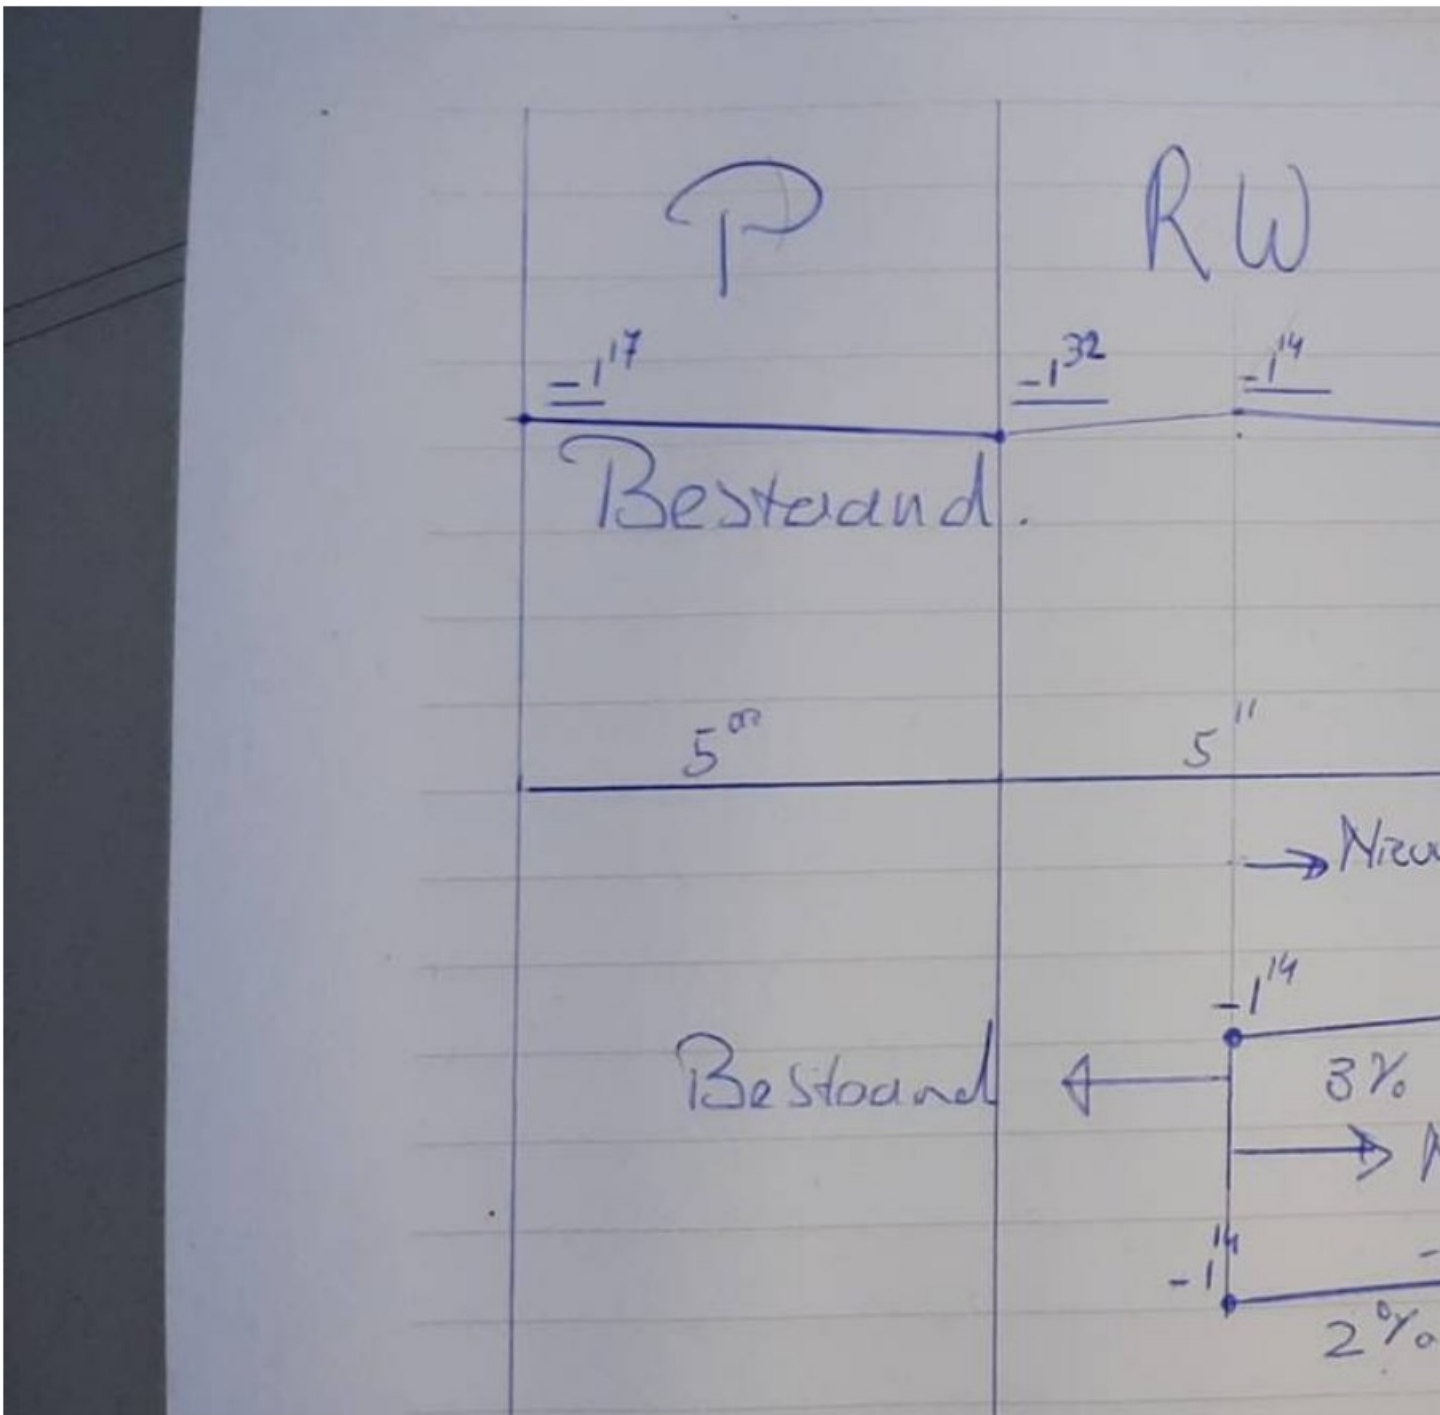 P RW
-1¹⁷ -1³² -1¹⁴
Bestaand.
5⁰⁰ 5¹¹
-1¹⁴
Bestaand
3%
-1¹⁴
2%